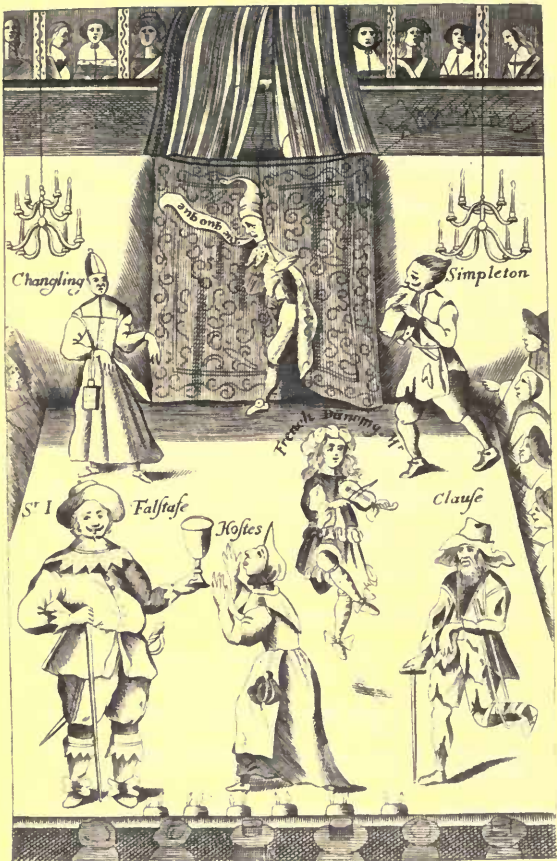 quo que
Changling
Simpleton
French Dancing Mr
Sr I Falstafe
Hostes
Clause